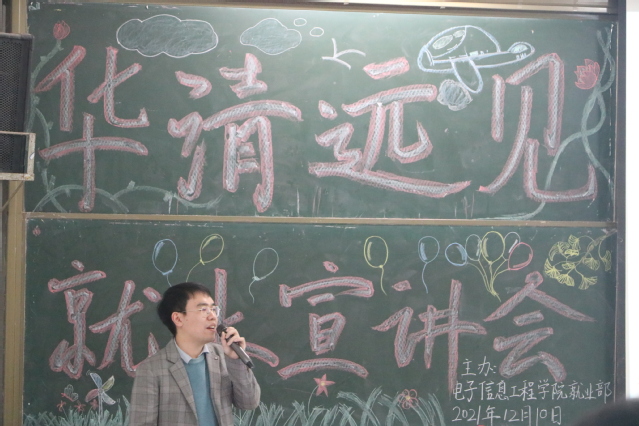 华清远见
就 宣讲会
主办:
电子信息工程学院就业部
2021年12月10日